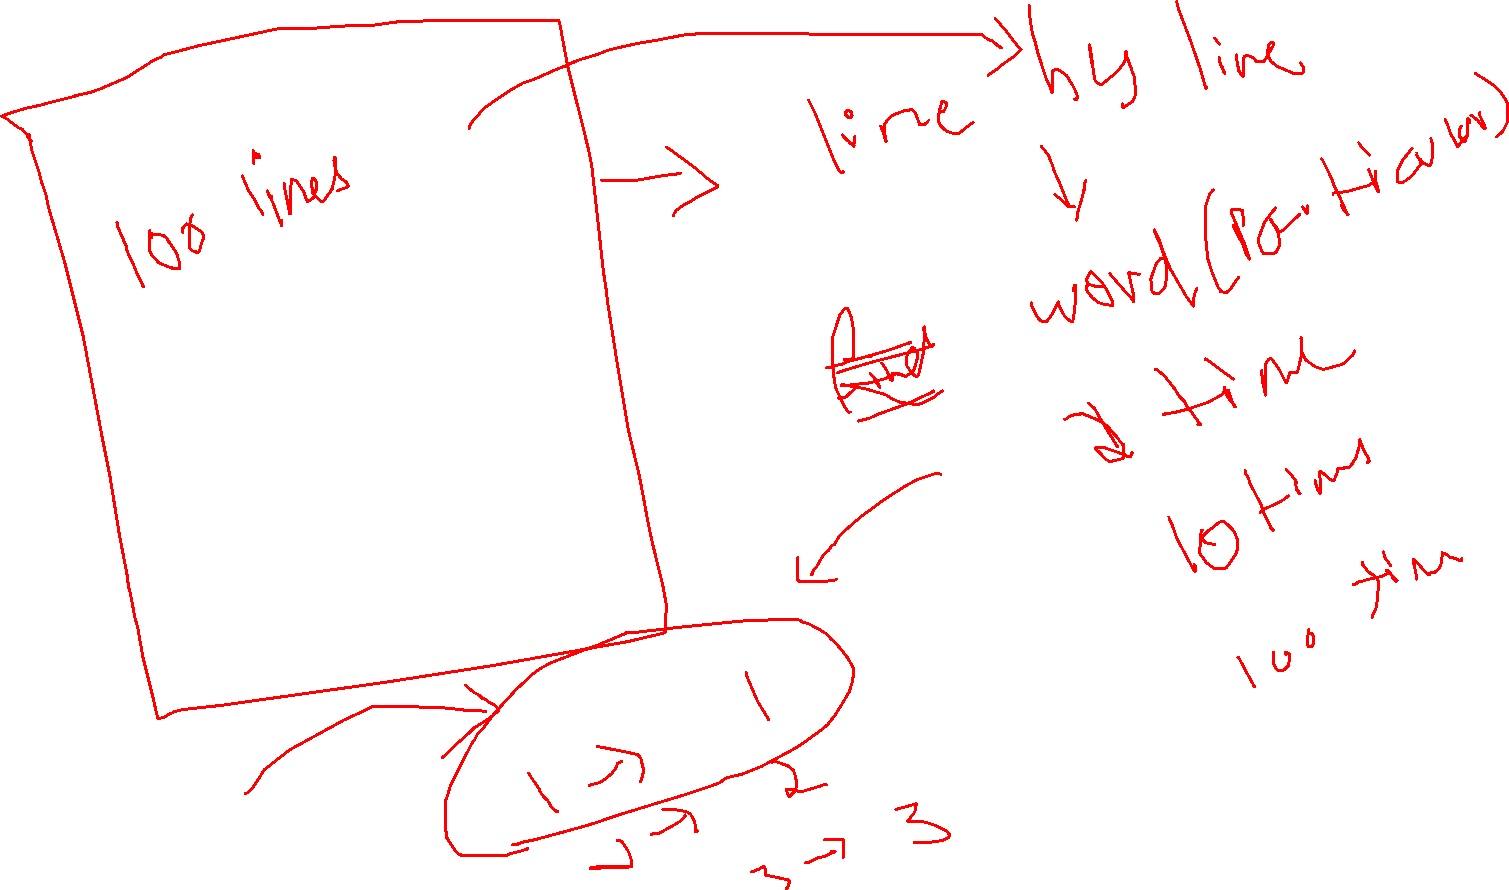 100 lines
line by line
word (particular)
time
10 times
100 time
1 → 1
2 → 2
3 → 3